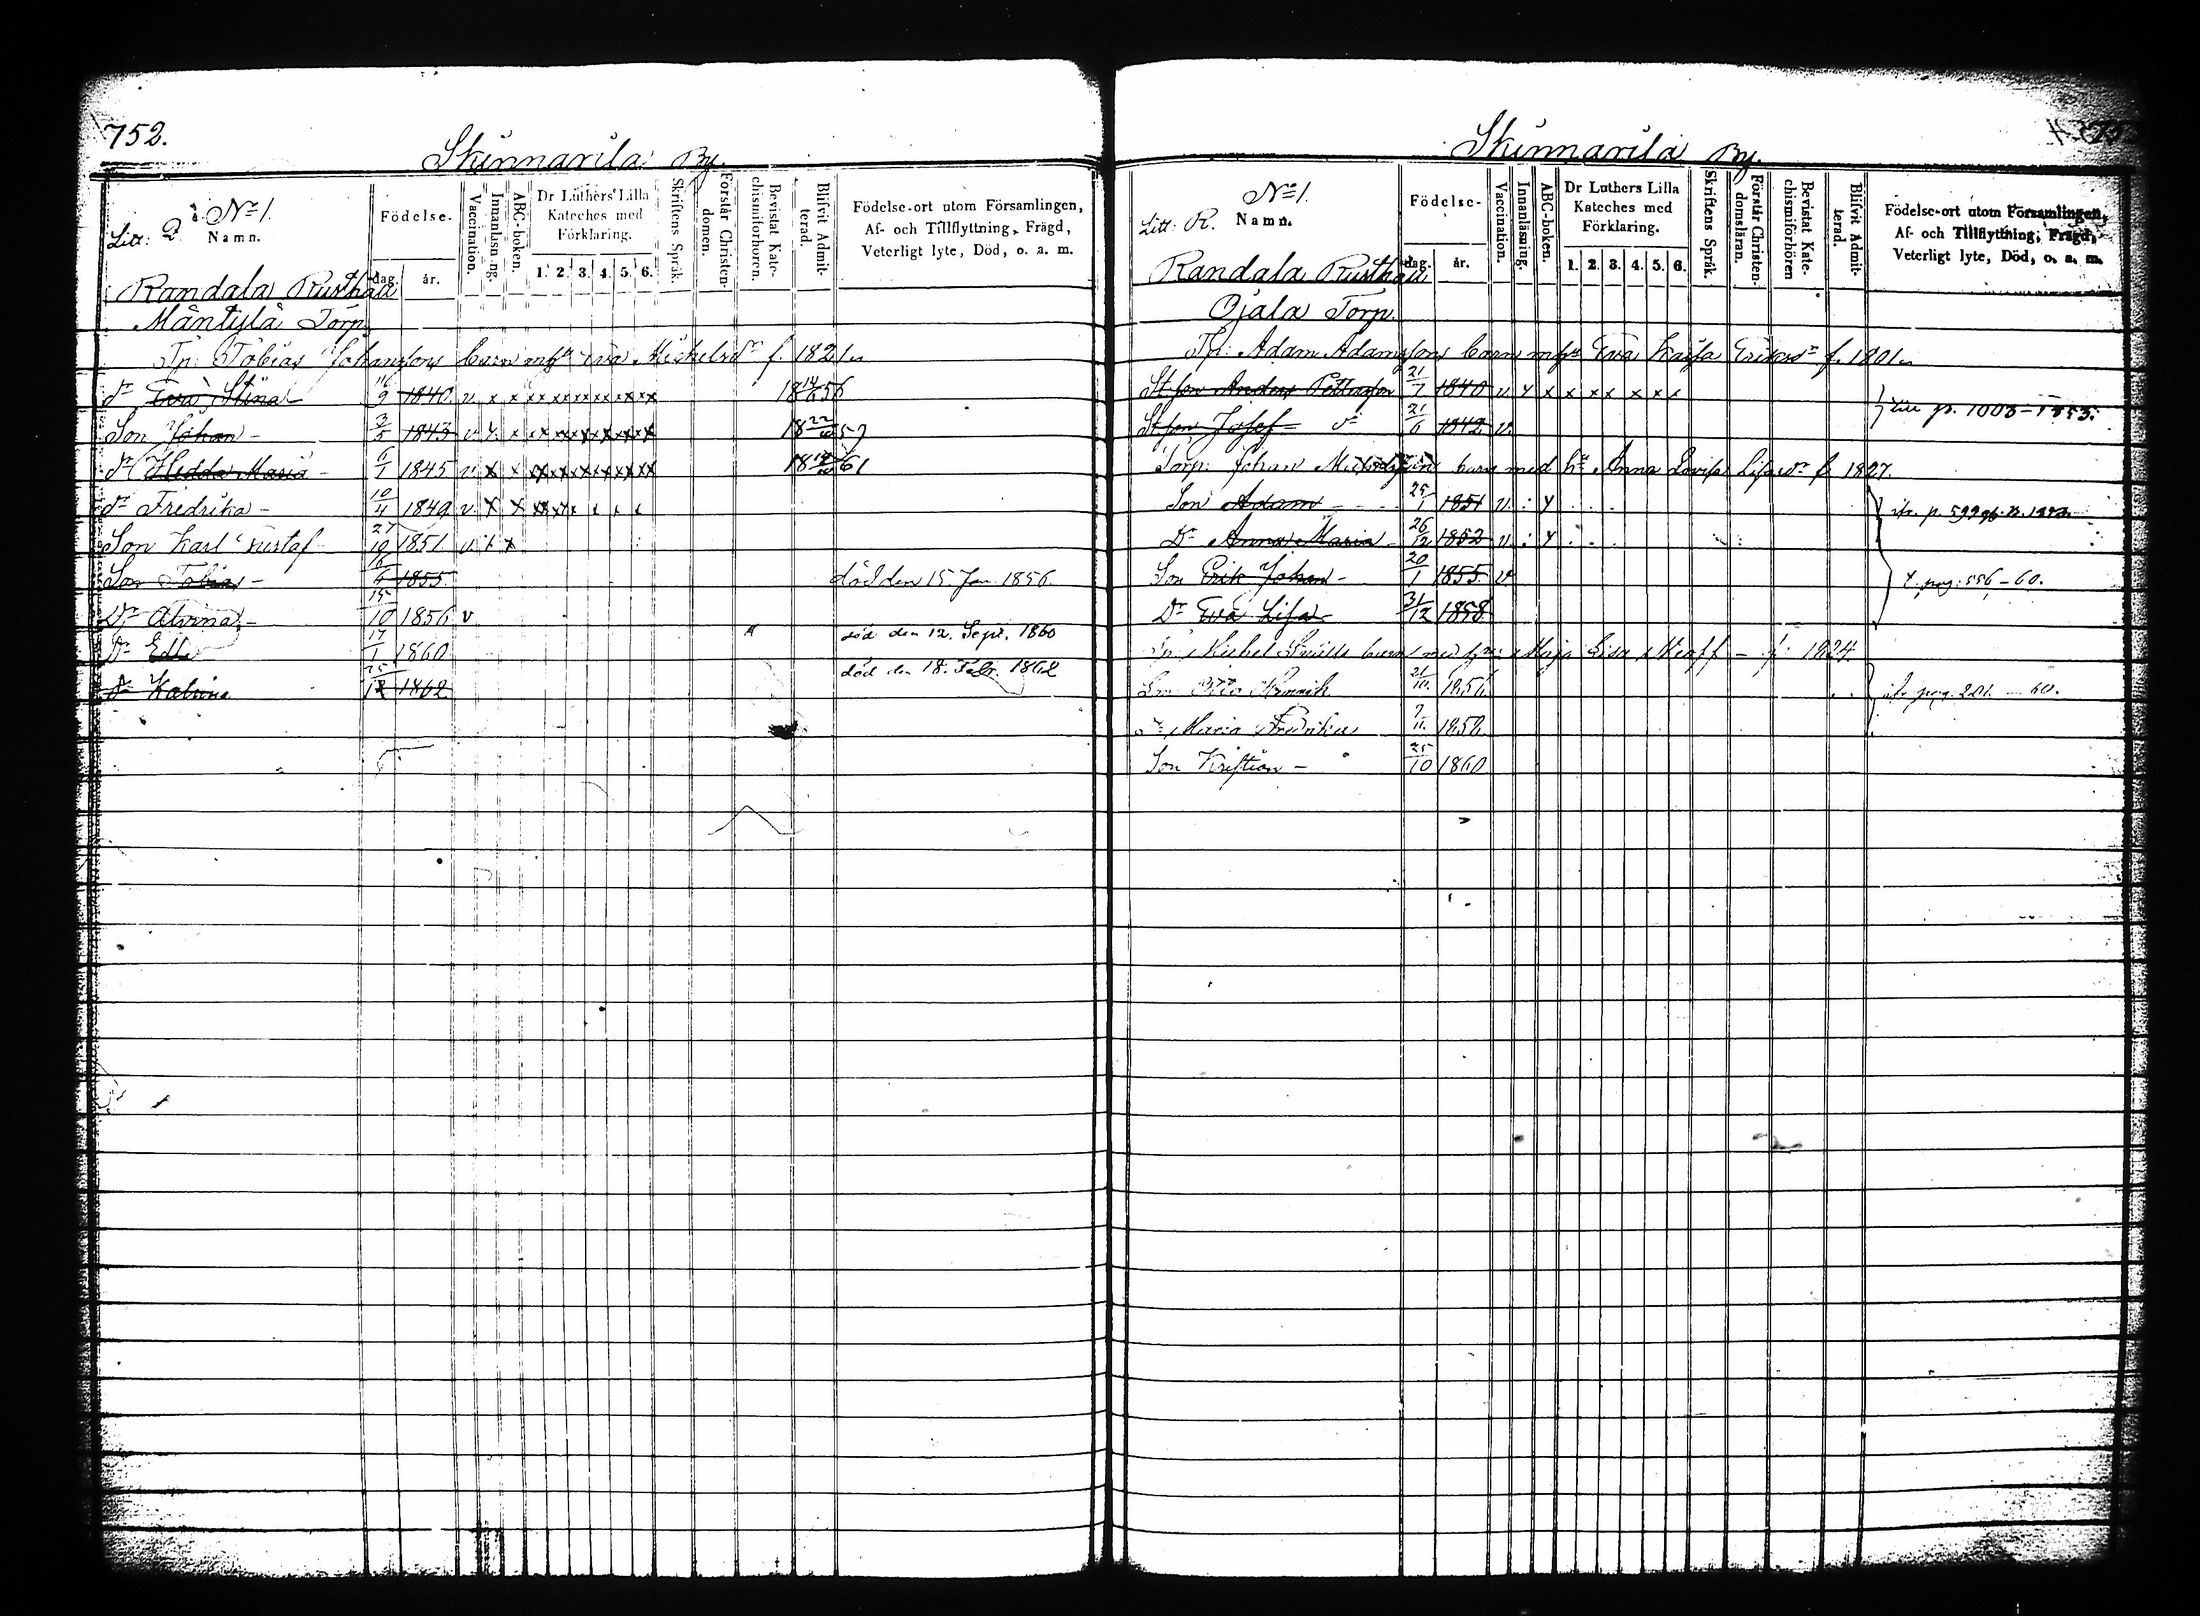 752.
Skinnarila By.
Litt: Q. No 1.
Namn.
Födelse.
dag. år.
Vaccination.
Innanläsning.
ABC-boken.
Dr Luthers Lilla
Kateches med
Förklaring.
1. 2. 3. 4. 5. 6.
Skriftens Språk.
Förstår Christen-
domen.
Bevistat Kate-
chismiförhören.
Blifvit Admit-
terad.
Födelse-ort utom Församlingen,
Af- och Tillflyttning, Frägd,
Veterligt lyte, Död, o. a. m.
Randala Rusthåll
Mäntylä Torp
Tp: Tobias Johanssons barn m hu Eva Michelsdr f. 1821.
dr Eva Stina 16/9 1840. v. x x x x x x x x x x x 18 14/6 56
Son Johan - 3/5 1843 v. x x x x x x x x x x 18 22/6 59
dr Hedda Maria - 6/1 1845 v. x x x x x x x x x x 18 61
dr Fredrika - 10/4 1849 v. x x x x x x
Son Karl Gustaf 27/10 1851 v. x x
Son Tobias - 1855. död den 15 Jan. 1856.
Dr Alvina - 15/10 1856 v
Dr Edla 17/1 1860 död den 12. Sept. 1860
dr Katrina 25/12 1862 död den 18. Febr. 1862
Skinnarila By.
No 1.
Litt: R. Namn.
Födelse-
dag. år.
Vaccination.
Innanläsning.
ABC-boken.
Dr Luthers Lilla
Kateches med
Förklaring.
1. 2. 3. 4. 5. 6.
Skriftens Språk.
Förstår Christen-
domsläran.
Bevistat Kate-
chismiförhören
Blifvit Admit-
terad.
Födelse-ort utom Församlingen,
Af- och Tillflyttning, Frägd,
Veterligt lyte, Död, o. a. m.
Randala Rusthåll
Ojala Torp.
Tp: Adam Adamssons barn m hu Eva Kaisa Eriksdr f. 1801.
St.son Anders Pettersson 21/7 1840 v. x x x x x x x x
St.son Josef - 21/6 1842 v. p. 1003-1853.
Torp: Johan barn med hu Anna Lovisa f. 1827.
Son Adam - - - 25/1 1851 v.
Dr Anna Maria - 26/12 1852 v
Son Erik Johan - 20/1 1855 v pag: 556-60.
Dr Eva Lisa 31/12 1858
Michel barn med hu: Maja Lisa - f: 1824.
Son 21/10. 1856. pag. 221. - 60.
dr Maria Fredrika 7/11. 1858.
Son Kristian - 25/10 1860